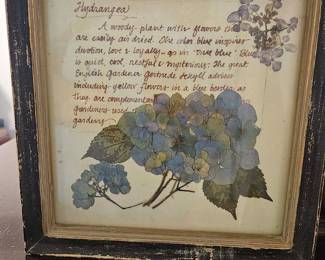 Hydrangea
A woody plant with flowers
are easily air dried. The color blue inspires
devotion, love & loyalty - as in "True Blue". Blue
is quiet, cool, restful & mysterious. The great
English Gardener Gertrude Jekyll advises
including yellow flowers in a blue border as
they are complementary
Gardeners used
gardens